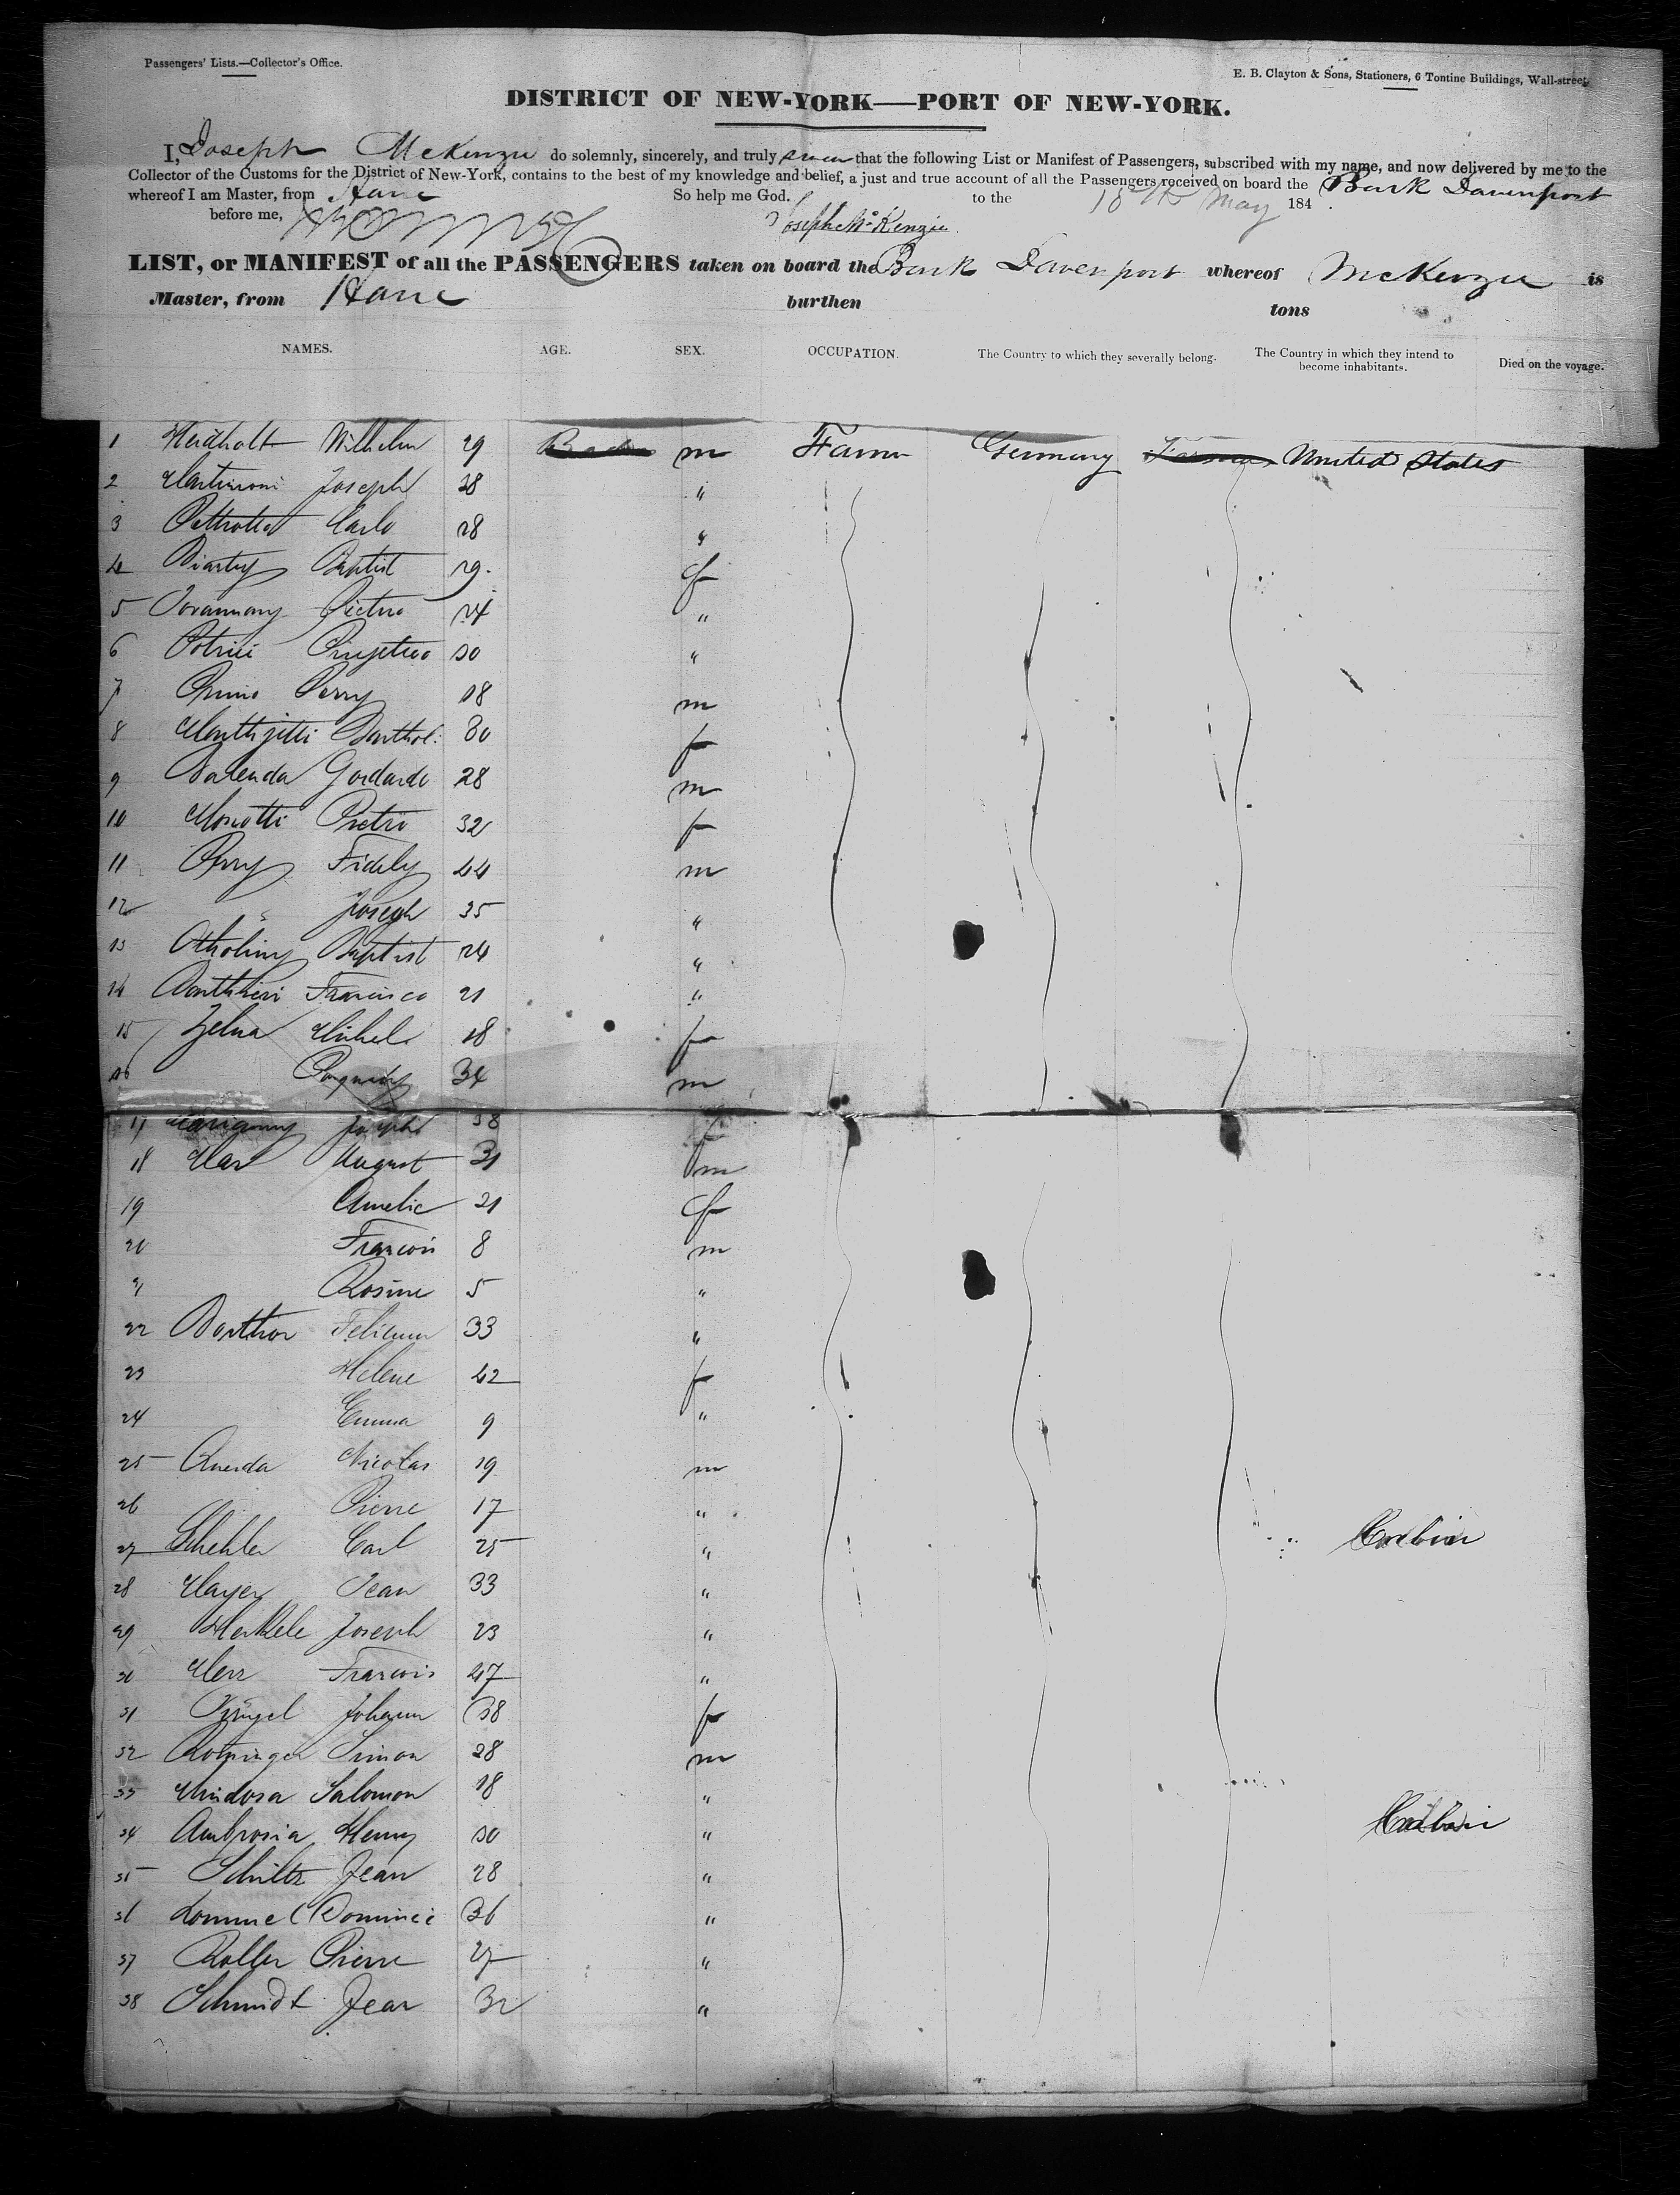 Passengers' Lists.—Collector's Office.
E. B. Clayton & Sons, Stationers, 6 Tontine Buildings, Wall-street.
DISTRICT OF NEW-YORK—PORT OF NEW-YORK.
I, Joseph McKenzie do solemnly, sincerely, and truly swear that the following List or Manifest of Passengers, subscribed with my name, and now delivered by me to the
Collector of the Customs for the District of New-York, contains to the best of my knowledge and belief, a just and true account of all the Passengers received on board the Bark Davenport
whereof I am Master, from Havre So help me God. to the 18th May 184 .
before me, Joseph McKenzie
LIST, or MANIFEST of all the PASSENGERS taken on board the Bark Davenport whereof McKenzie is
Master, from Havre burthen tons
NAMES. AGE. SEX. OCCUPATION. The Country to which they severally belong. The Country in which they intend to become inhabitants. Died on the voyage.
1 Heidholt Wilhelm 29 m Farmer Germany United States
2 Joseph 38 "
3 Carlo 28 "
4 Baptist 29 f
5 Pietro 24 "
6 30 "
7 Perry 18 m
8 Barthol: 30 f
9 Balenda Godardo 28 m
10 Moscotti Pietro 32 f
11 Perry Fidely 44 m
12 " Joseph 35 "
13 Baptist 24 "
14 Francisco 21 "
15 Zelma Michel 18 f
16 34 m
17 Joseph 38 f
18 Mar August 31 m
19 Amelie 21 f
20 Francois 8 m
21 Rosine 5 "
22 Barthor 33 "
23 Helene 42 f
24 Emma 9 "
25 Nicolas 19 m
26 Pierre 17 "
27 Schehler Carl 25 " Cabin
28 Mayer Jean 33 "
29 Joseph 23 "
30 Merz Francois 47 "
31 Johann 38 f
32 Simon 28 m
33 Mindosa Salomon 18 "
34 Ambrosia Henry 30 " Cabin
35 Schiltz Jean 28 "
36 Lomme Dominic 36 "
37 Roller Pierre 27 "
38 Schmidt Jean 32 "